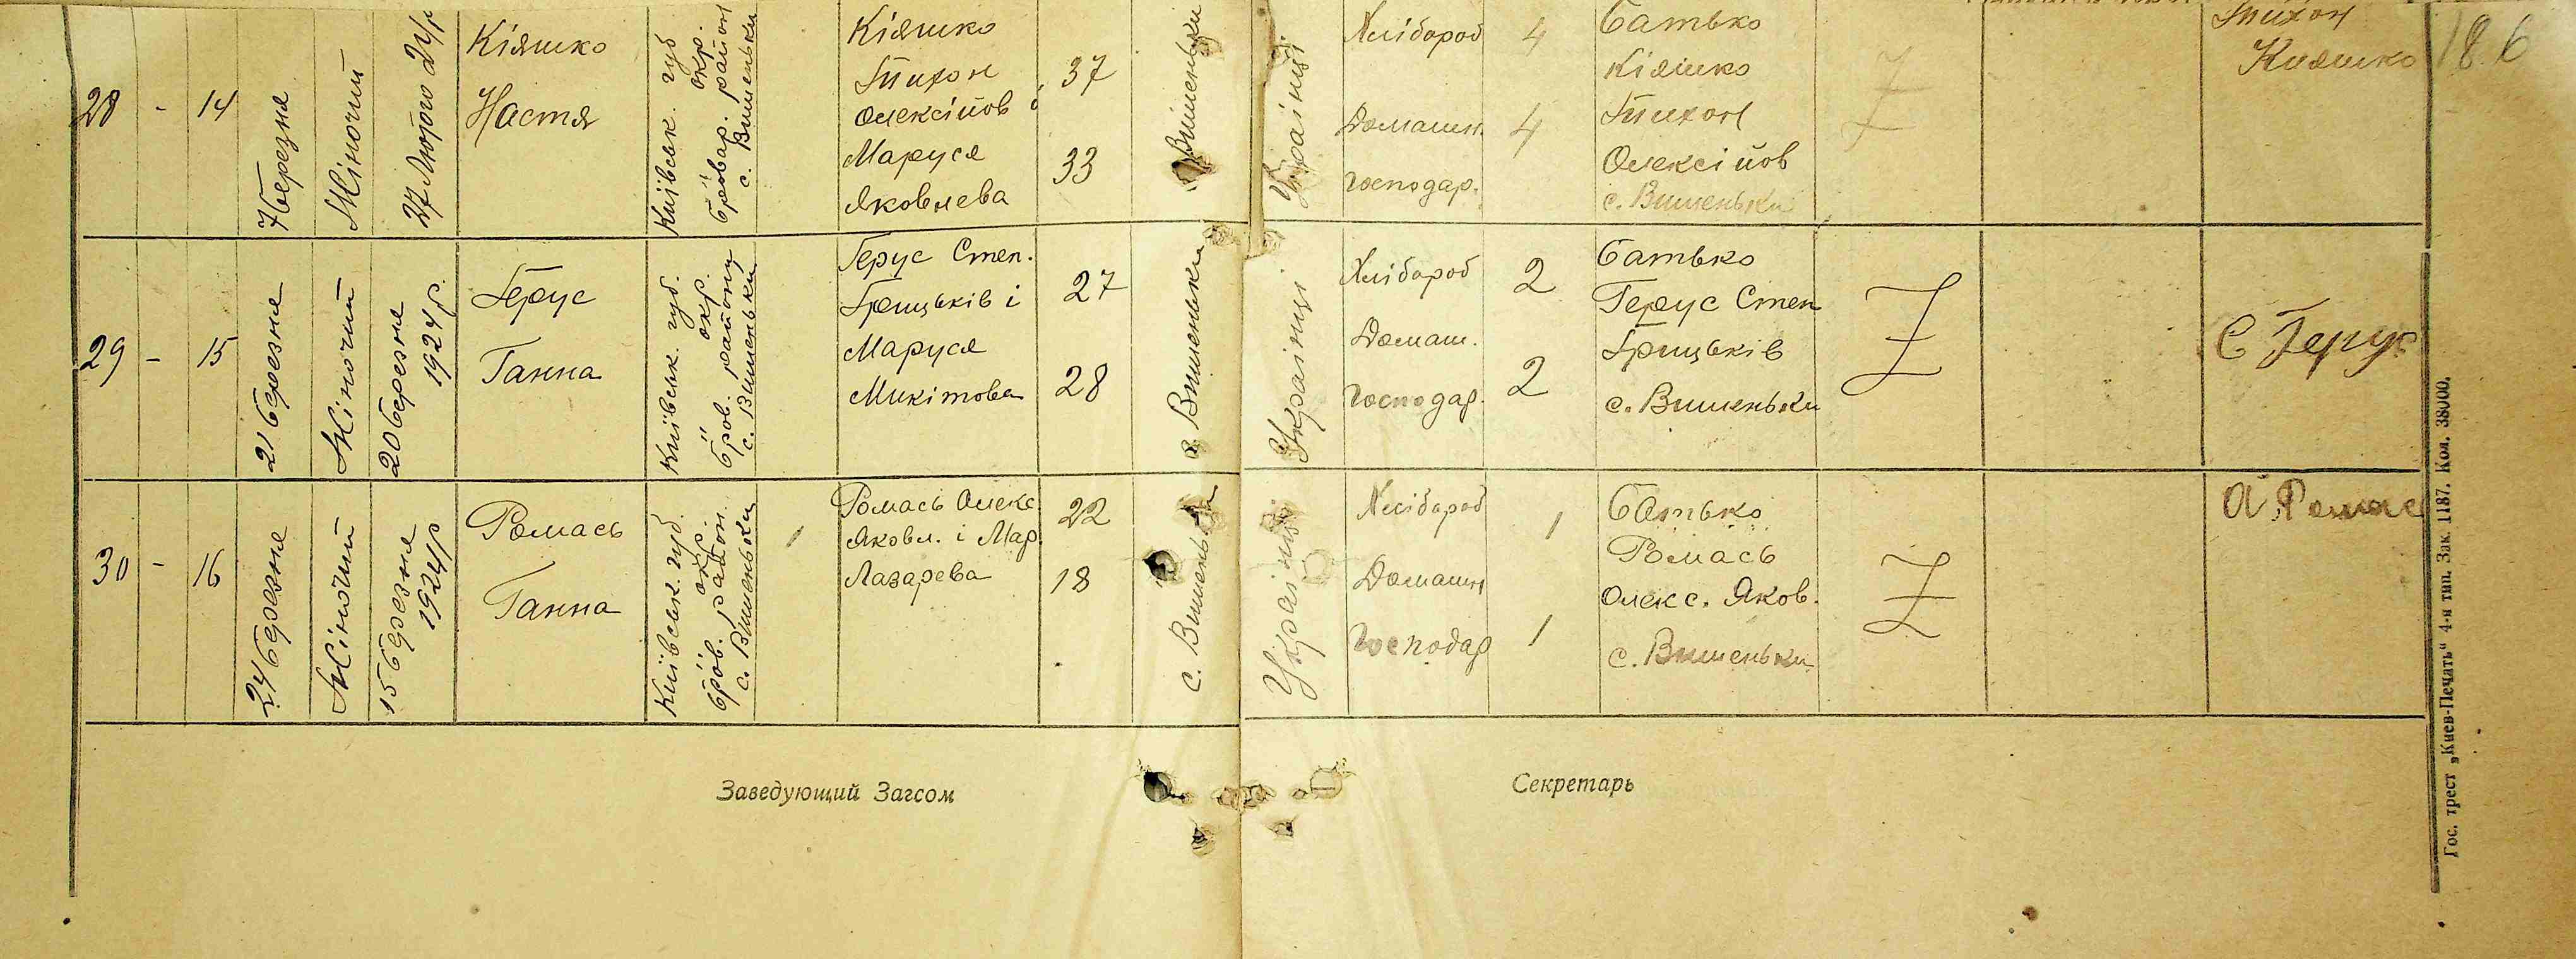 28 - 14
7 березня
Жіночий
27 Лютого 24р
Кіяшко
Настя
Київськ. губ.
окр.
бровар. район
с. Вишеньки
Кіяшко
Тихон
Олексійов і
Маруся
Яковлева
37
33
Вишеньки
Українці
Хлібороб
Домашн.
господар.
4
4
Батько
Кіяшко
Тихон
Олексійов
с. Вишеньки
Тихон
Кияшко
186
29 - 15
21 березня
Жіночий
20 березня
1924 р.
Герус
Ганна
Київськ. губ.
окр.
бров. району
с. Вишеньки
Герус Степ.
Грицьків і
Маруся
Микітова
27
28
с. Вишеньки
Українці
Хлібороб
Домаш.
господар.
2
2
Батько
Герус Степ
Грицьків
с. Вишеньки
С Герус
30 - 16
24 березня
Жіночий
15 березня
1924 р
Ромась
Ганна
Київськ. губ.
окр.
бров. район.
с. Вишеньки
1
Ромась Олекс.
Яковл. і Мар.
Лазарева
22
18
с. Вишеньки
Українці
Хлібороб
Домашн
господар
1
1
Батько
Ромась
Олекс. Яков.
с. Вишеньки
А Ромас
Заведующий Загсом
Секретарь
Гос. трест „Киев-Печать“ 4-я тип. Зак. 1187. Кол. 38000.